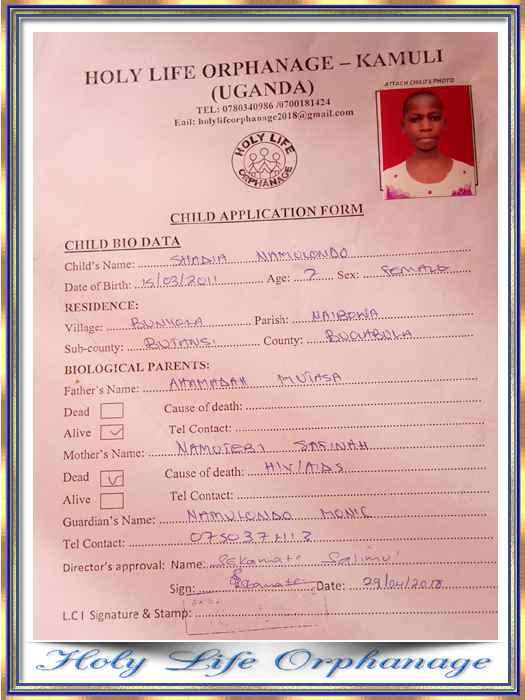 HOLY LIFE ORPHANAGE – KAMULI
(UGANDA)
TEL: 0780340986 /0700181424
Eail: holylifeorphanage2018@gmail.com
ATTACH CHILD'S PHOTO
HOLY LIFE
ORPHANAGE
CHILD APPLICATION FORM
CHILD BIO DATA
Child's Name: SHADIA NAMULONDO
Date of Birth: 15/03/2011 Age: 7 Sex: FEMALE
RESIDENCE:
Village: BUNYOLA Parish: NAIBOWA
Sub-county: BUTANSI County: BUGABULA
BIOLOGICAL PARENTS:
Father's Name: AHAMADAH MUTASA
Dead Cause of death:
Alive ✓ Tel Contact:
Mother's Name: NAMUTEBI SAFINAH
Dead ✓ Cause of death: HIV/AIDS
Alive Tel Contact:
Guardian's Name: NAMULONDO MONIC
Tel Contact:
Director's approval: Name: Sekamate Salimu
Sign: Date: 29/04/2018
L.C I Signature & Stamp:
Holy Life Orphanage